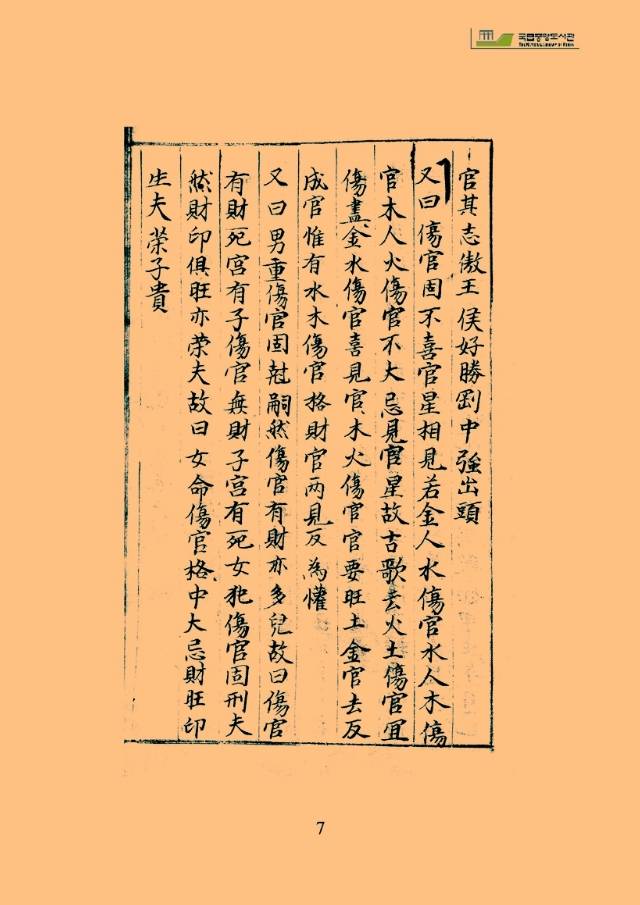 국립중앙도서관
官其志傲王侯好勝剛中強出頭
又曰傷官固不喜官星相見若金人水傷官水人木傷
官木人火傷官不大忌見官星故古歌云火土傷官宜
傷盡金水傷官喜見官木火傷官官要旺土金官去反
成官惟有水木傷官格財官两見反為懽
又曰男重傷官固尅嗣然傷官有財亦多兒故曰傷官
有財死宮有子傷官無財子宮有死女犯傷官固刑夫
然財印俱旺亦榮夫故曰女命傷官格中大忌財旺印
生夫榮子貴
7